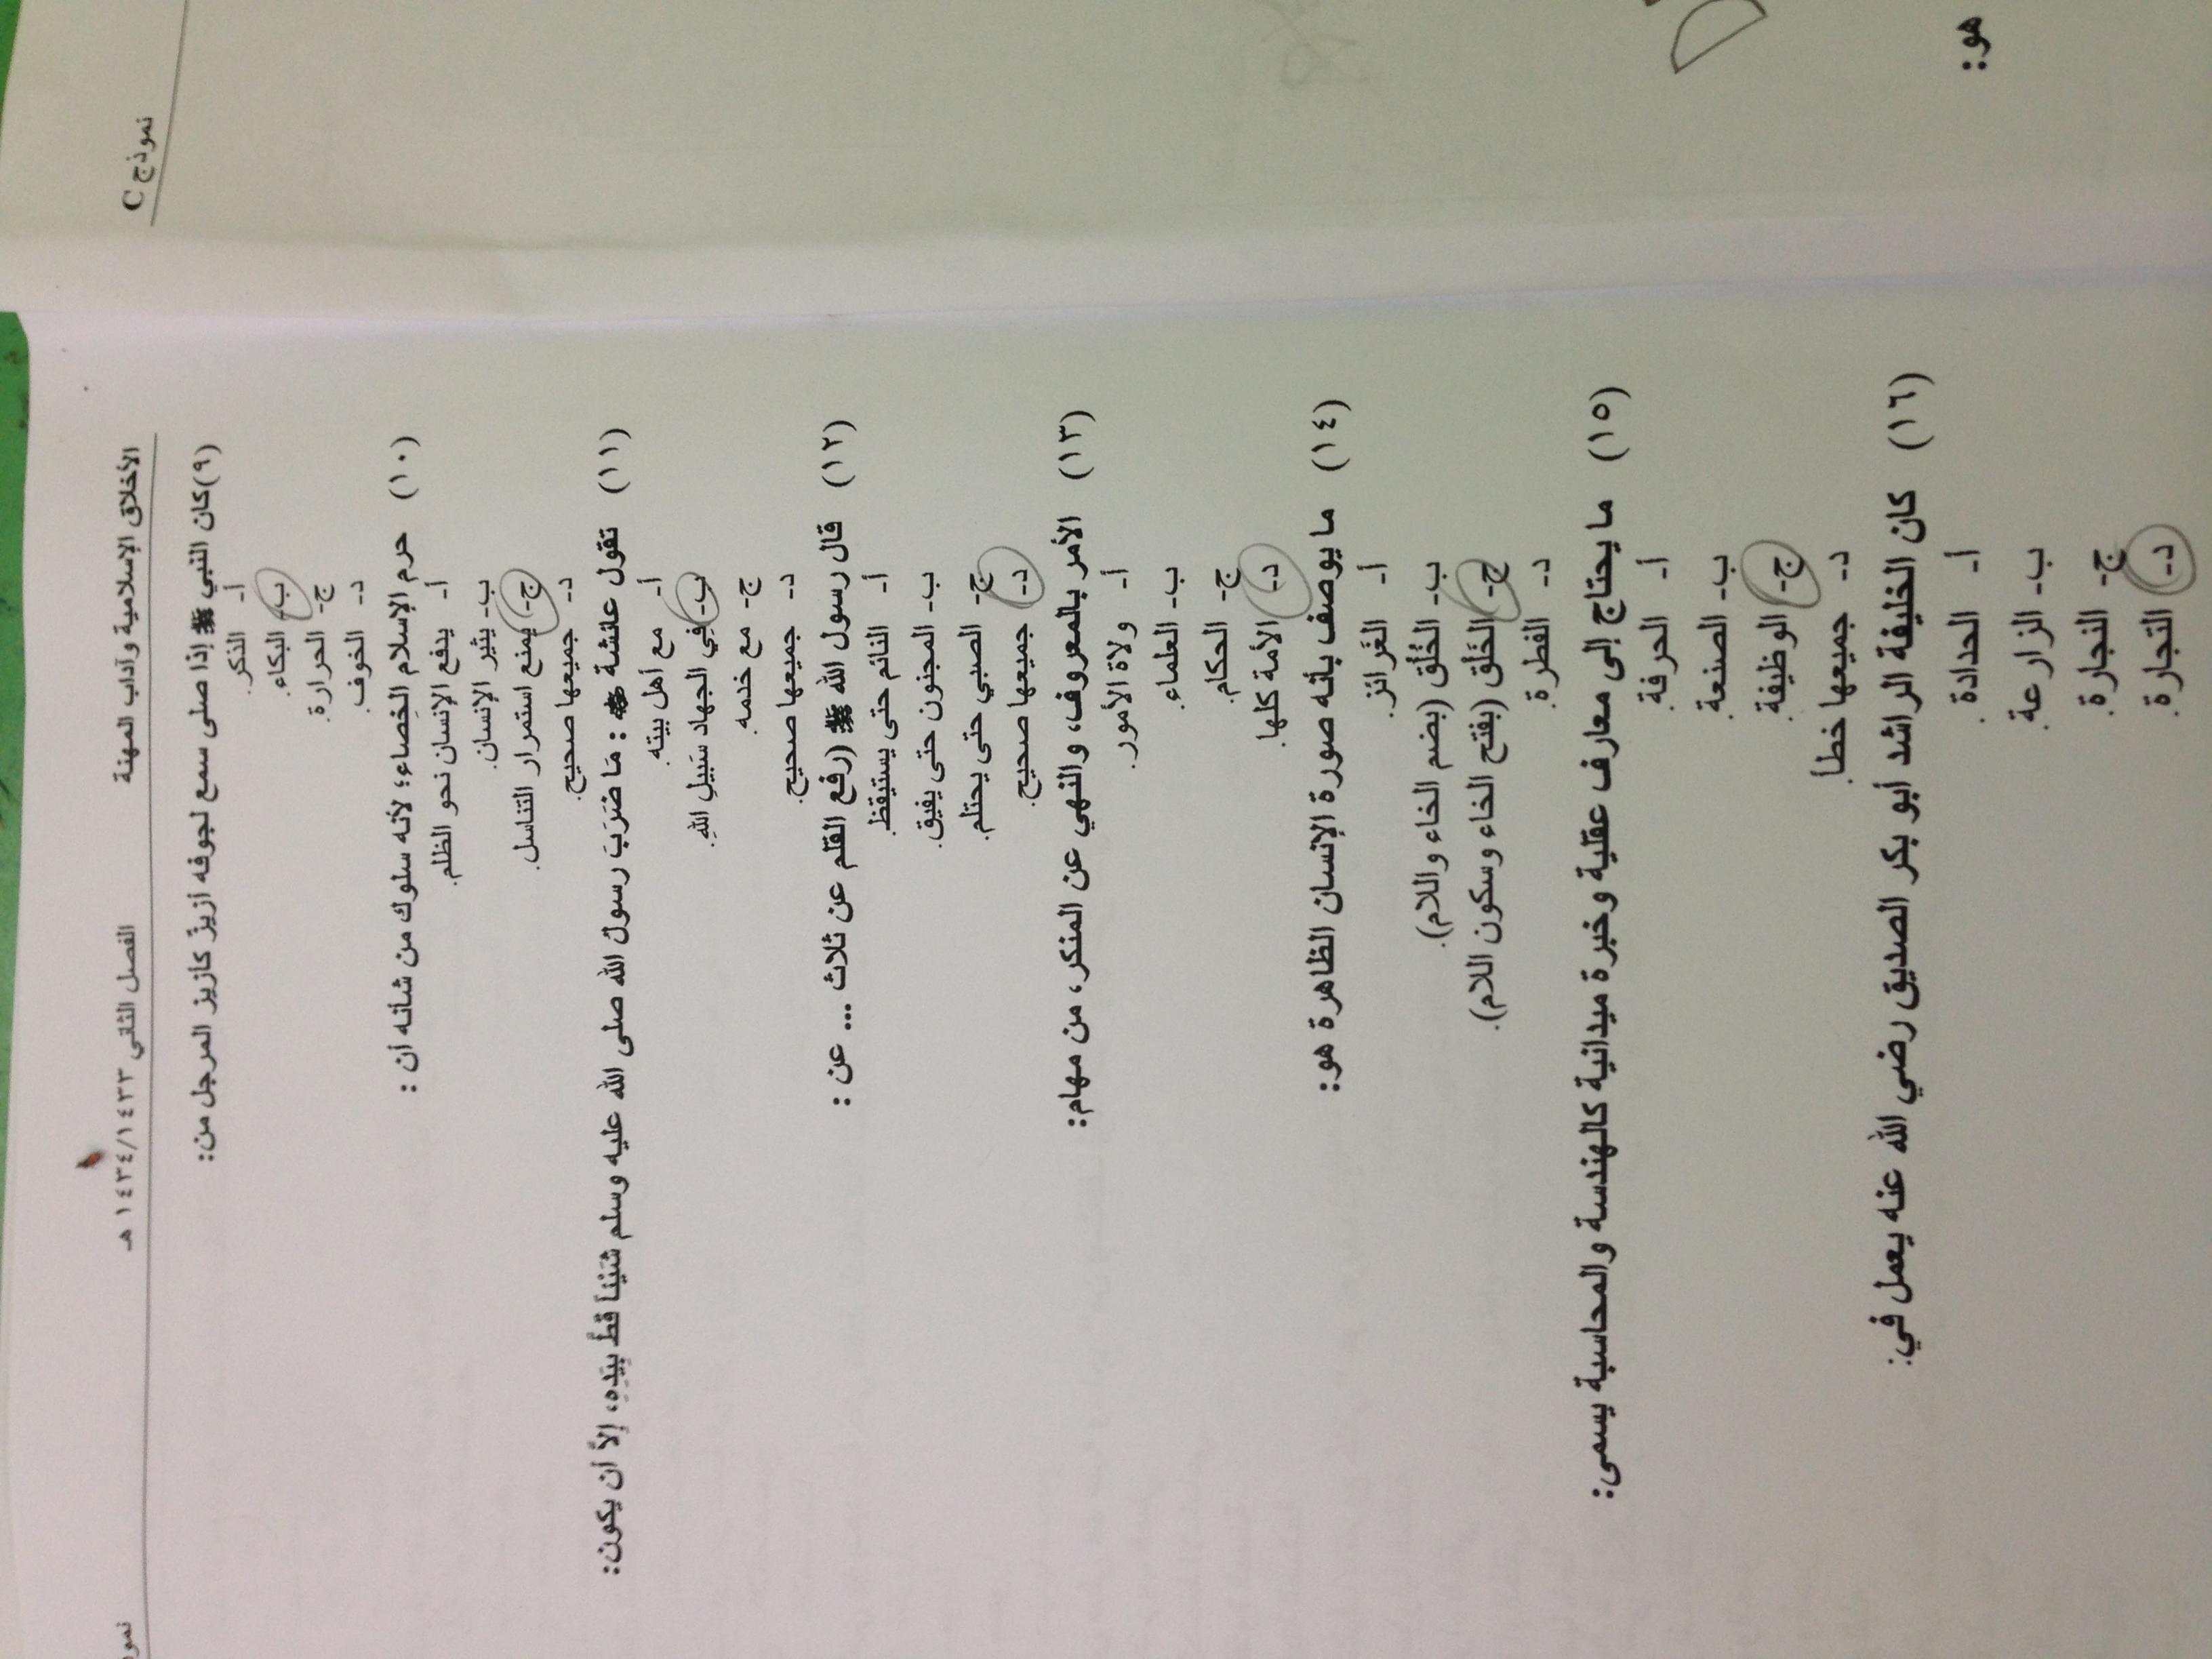 الأخلاق الإسلامية وآداب المهنة الفصل الثاني ١٤٣٤/١٤٣٣ هـ
(٩) كان النبي ﷺ إذا صلى سمع لجوفه أزيزٌ كأزيز المرجل من:
أ- الذكر.
ب- البكاء.
ج- الحرارة.
د- الخوف.
(١٠) حرم الإسلام الخِصاء؛ لأنه سلوك من شأنه أن :
أ- يدفع الإنسان نحو الظلم.
ب- يثير الإنسان.
ج- يمنع استمرار التناسل.
د- جميعها صحيح.
(١١) تقول عائشة : مَا ضَرَبَ رسول الله صلى الله عليه وسلم شَيْئاً قَطُّ بِيَدِهِ، إلاَّ أن يكون:
أ- مع أهل بيته.
ب- في الجهاد سَبِيلِ اللهِ.
ج- مع خدمه.
د- جميعها صحيح.
(١٢) قال رسول الله ﷺ (رفع القلم عن ثلاث ... عن :
أ- النائم حتى يستيقظ.
ب- المجنون حتى يفيق.
ج- الصبي حتى يحتلم.
د- جميعها صحيح.
(١٣) الأمر بالمعروف، والنهي عن المنكر، من مهام:
أ- ولاة الأمور.
ب- العلماء.
ج- الحكام.
د- الأمة كلها.
(١٤) ما يوصف بأنه صورة الإنسان الظاهرة هو:
أ- الغَرائز.
ب- الخُلُق (بضم الخاء واللام).
ج- الخَلْق (بفتح الخاء وسكون اللام).
د- الفطرة.
(١٥) ما يحتاج إلى معارف عقلية وخبرة ميدانية كالهندسة والمحاسبة يسمى:
أ- الحرفة.
ب- الصنعة.
ج- الوظيفة.
د- جميعها خطأ.
(١٦) كان الخليفة الراشد أبو بكر الصديق رضي الله عنه يعمل في:
أ- الحدادة.
ب- الزارعة.
ج- النجارة.
د- التجارة.
نموذج C
هو: